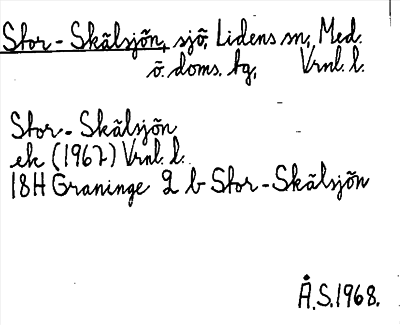 Stor-Skälsjön, sjö, Lidens sn, Med.
ö. doms. tg, Vrnl. l.
Stor-Skälsjön
ek (1967) Vrnl. l.
18H Graninge 2 b Stor-Skälsjön
Å.S.1968.